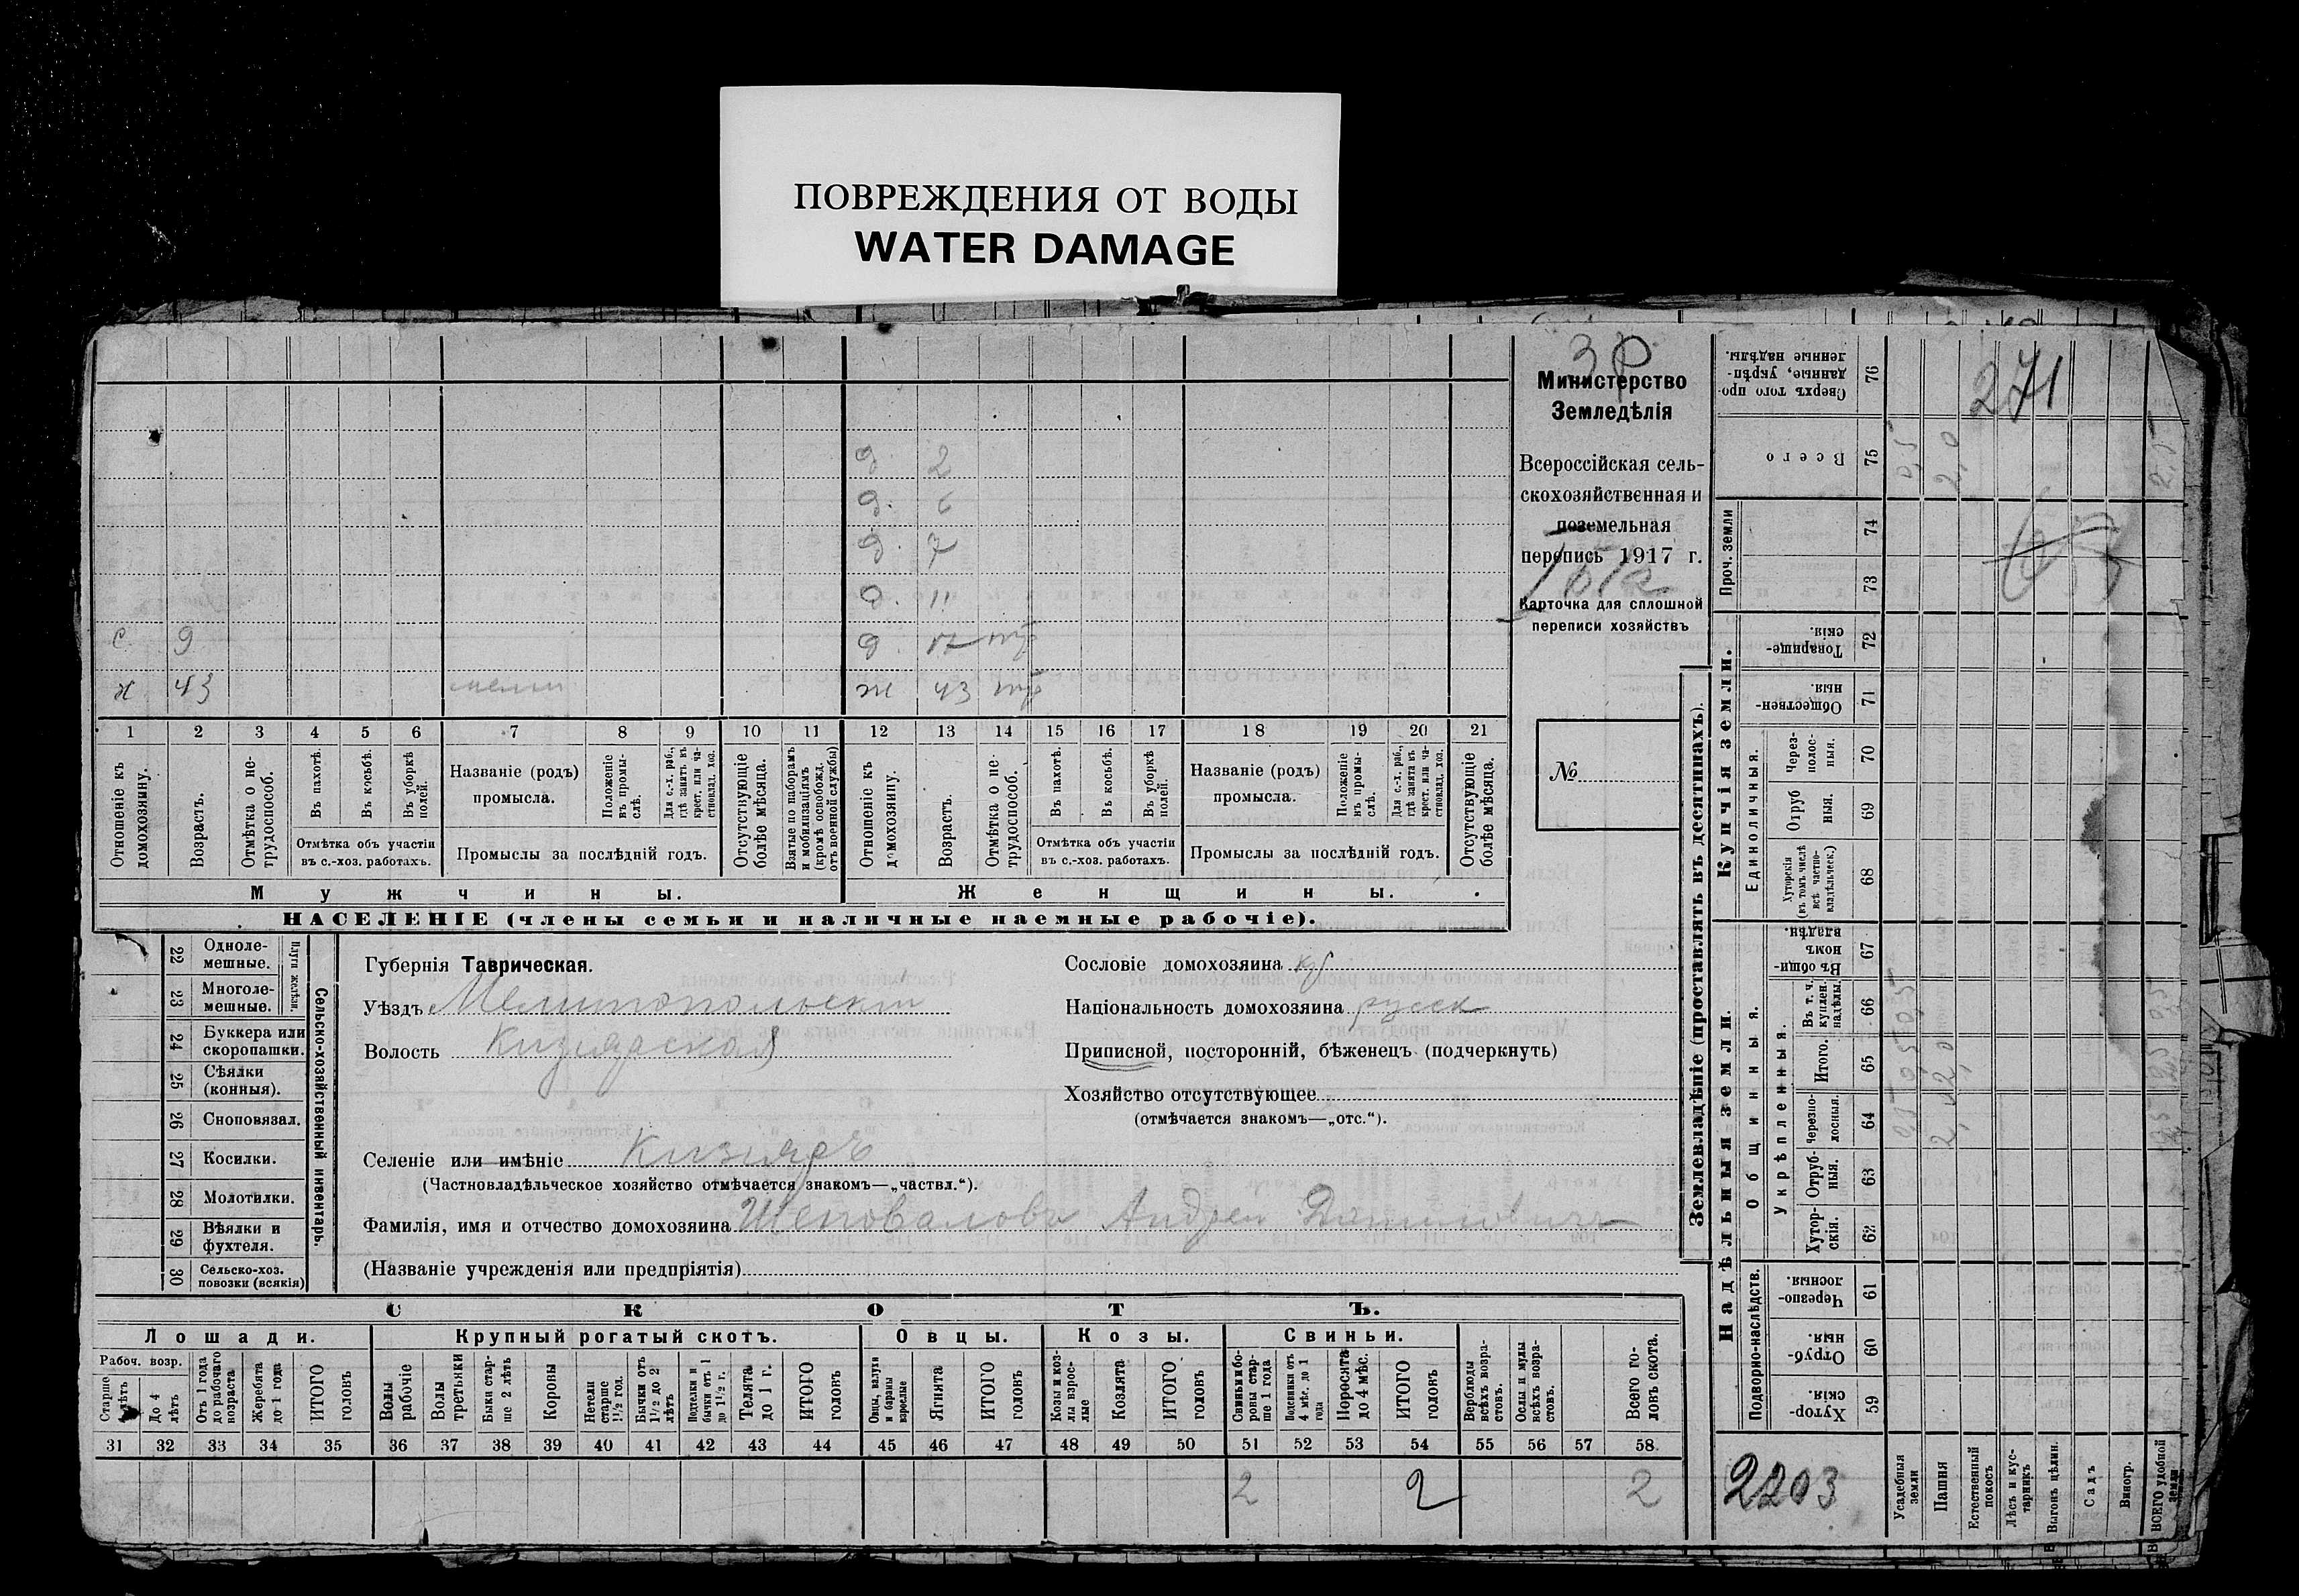 ПОВРЕЖДЕНИЯ ОТ ВОДЫ
WATER DAMAGE
Министерство
Земледѣлія
Всероссійская сель-
скохозяйственная и
поземельная
перепись 1917 г.
Карточка для сплошной
переписи хозяйствъ
№
д. 2
д. 6
д. 7
д. 11
с. 9 д. 17
х 43 ж 43
1 2 3 4 5 6 7 8 9 10 11 12 13 14 15 16 17 18 19 20 21
Отношеніе къ домохозяину.
Возрастъ.
Отмѣтка о не-трудоспособ.
Въ пахотѣ.
Въ косьбѣ.
Въ уборкѣ полей.
Отмѣтка объ участіи
въ с.-хоз. работахъ.
Названіе (родъ)
промысла.
Положеніе въ промы-слѣ.
Для с.-х. раб., гдѣ занятъ въ крест. или ча-стновлад. хоз.
Промыслы за послѣдній годъ.
Отсутствующіе болѣе мѣсяца.
Взятые по наборамъ и мобилизаціямъ (кромѣ освобожд. отъ военной службы)
Отношеніе къ домохозяину.
Возрастъ.
Отмѣтка о не-трудоспособ.
Въ пахотѣ.
Въ косьбѣ.
Въ уборкѣ полей.
Отмѣтка объ участіи
въ с.-хоз. работахъ.
Названіе (родъ)
промысла.
Положеніе въ промы-слѣ.
Для с.-х. раб., гдѣ занята въ крест. или ча-стновлад. хоз.
Промыслы за послѣдній годъ.
Отсутствующіе болѣе мѣсяца.
Мужчины. Женщины.
НАСЕЛЕНІЕ (члены семьи и наличные наемные рабочіе).
Сельско-хозяйственный инвентарь.
Плуги желѣзн.
22 Одноле-мешные.
23 Многоле-мешные.
24 Буккера или скоропашки.
25 Сѣялки (конныя).
26 Сноповязал.
27 Косилки.
28 Молотилки.
29 Вѣялки и фухтеля.
30 Сельско-хоз. повозки (всякія)
Губернія Таврическая.
Уѣздъ Мелитопольскій
Волость Кизиярская
Селеніе или имѣніе Кизияръ
(Частновладѣльческое хозяйство отмѣчается знакомъ—„частвл.“).
Фамилія, имя и отчество домохозяина Шеповаловъ Андрей Даниловичъ
(Названіе учрежденія или предпріятія)
Сословіе домохозяина кр
Національность домохозяина русск
Приписной, посторонній, бѣженецъ (подчеркнуть)
Хозяйство отсутствующее
(отмѣчается знакомъ—„отс.“).
СКОТЪ.
Лошади. Крупный рогатый скотъ. Овцы. Козы. Свиньи.
Рабоч. возр.
Старше лѣтъ
До 4 лѣтъ
Отъ 1 года до рабочаго возраста
Жеребята до 1 года
ИТОГО головъ
Волы рабочіе
Волы третьяки
Быки стар-ше 2 лѣтъ
Коровы
Нетели старше 1½ год.
Бычки отъ 1½ до 2 лѣтъ
Подтелки и бычки отъ 1 до 1½ г.
Телята до 1 г.
ИТОГО головъ
Овцы, валухи и бараны взрослые
Ягнята
ИТОГО головъ
Козы и коз-лы взрос-лые
Козлята
ИТОГО головъ
Свиньи и бо-ровы стар-ше 1 года
Подсвинки отъ 4 мѣс. до 1 года
Поросята до 4 мѣс.
ИТОГО головъ
Верблюды всѣхъ возра-стовъ.
Ослы и мулы всѣхъ возра-стовъ.
Всего го-ловъ скота.
31 32 33 34 35 36 37 38 39 40 41 42 43 44 45 46 47 48 49 50 51 52 53 54 55 56 57 58
2 2 2
Землевладѣніе (проставлять въ десятинахъ).
Купчія земли.
Надѣльныя земли.
Сверхъ того про-данные, укрѣп-ленные надѣлы. 76
Всего 75
Проч. земли 74 73
Товарище-скія. 72
Обществен-ныя. 71
Единоличныя.
Через-полос-ныя. 70
Отруб-ныя. 69
Хуторскія (въ томъ числѣ всѣ частно-владѣльческ.) 68
Общинныя.
Въ общин-номъ владѣн. 67
Укрѣпленныя.
Въ т. ч. куплен. надѣлы. 66
Итого. 65
Черезпо-лосныя. 64
Отруб-ныя. 63
Хутор-скія. 62
Подворно-наслѣдств.
Черезпо-лосныя. 61
Отруб-ныя. 60
Хутор-скія. 59
Усадебныя земли
Пашня
Естественный покосъ
Лѣсъ и кус-тарникъ
Выгонъ цѣлин.
Садъ
Виногр.
ВСЕГО удобной земли
271
2,0
2,0
2203